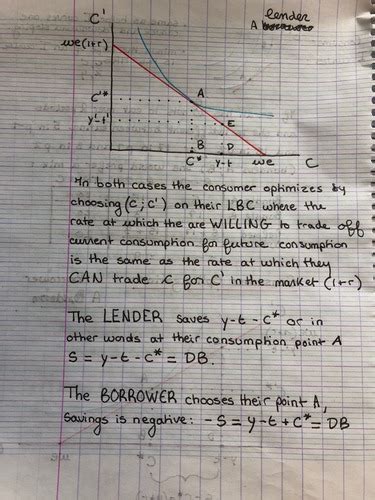 C'
lender
A borrower
we(1+r)
A
C'*
E
y'-t'
B
D
C*
y-t
we
C
In both cases the consumer optimizes by
choosing (c; c') on their LBC where the
rate at which the are WILLING to trade off
current consumption for future consumption
is the same as the rate at which they
CAN trade c for c' in the market (1+r)
The LENDER saves y-t-c* or in
other words at their consumption point A
S = y-t-c* = DB.
The BORROWER chooses their point A,
savings is negative: -S = y-t+c* = DB